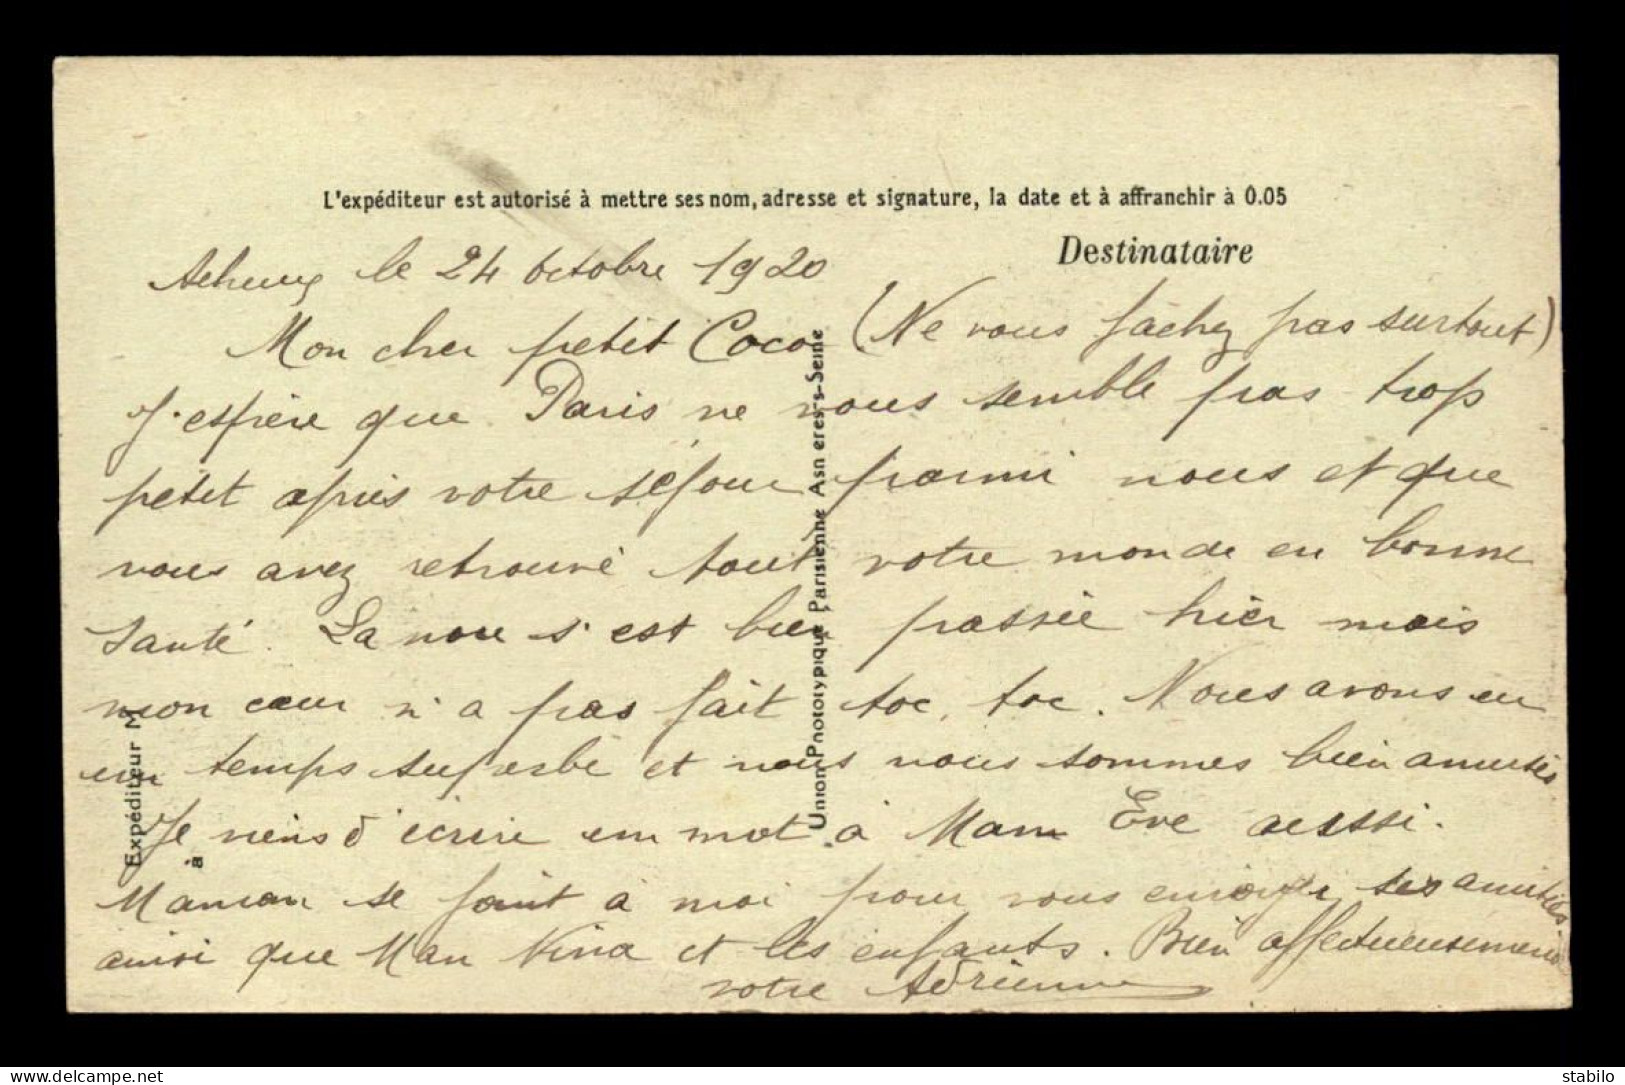 L'expéditeur est autorisé à mettre ses nom, adresse et signature, la date et à affranchir à 0.05
Destinataire
le 24 octobre 1920
Mon cher petit Coco (Ne vous fâchez pas surtout)
J'espère que Paris ne vous semble pas trop
petit après votre séjour parmi nous et que
vous avez retrouvé tout votre monde en bonne
santé. La noce s'est bien passée hier mais
mon cœur n'a pas fait toc, toc. Nous avons eu
un temps superbe et nous nous sommes bien amusés
Je viens d'écrire un mot à Mam Eve aussi.
Maman se joint à moi pour vous envoyer ses amitiés
ainsi que Man Nina et les enfants. Bien affectueusement
votre Adrienne
Expéditeur M
à
Union Phototypique Parisienne Asnières s-Seine
www.delcampe.net
stabilo